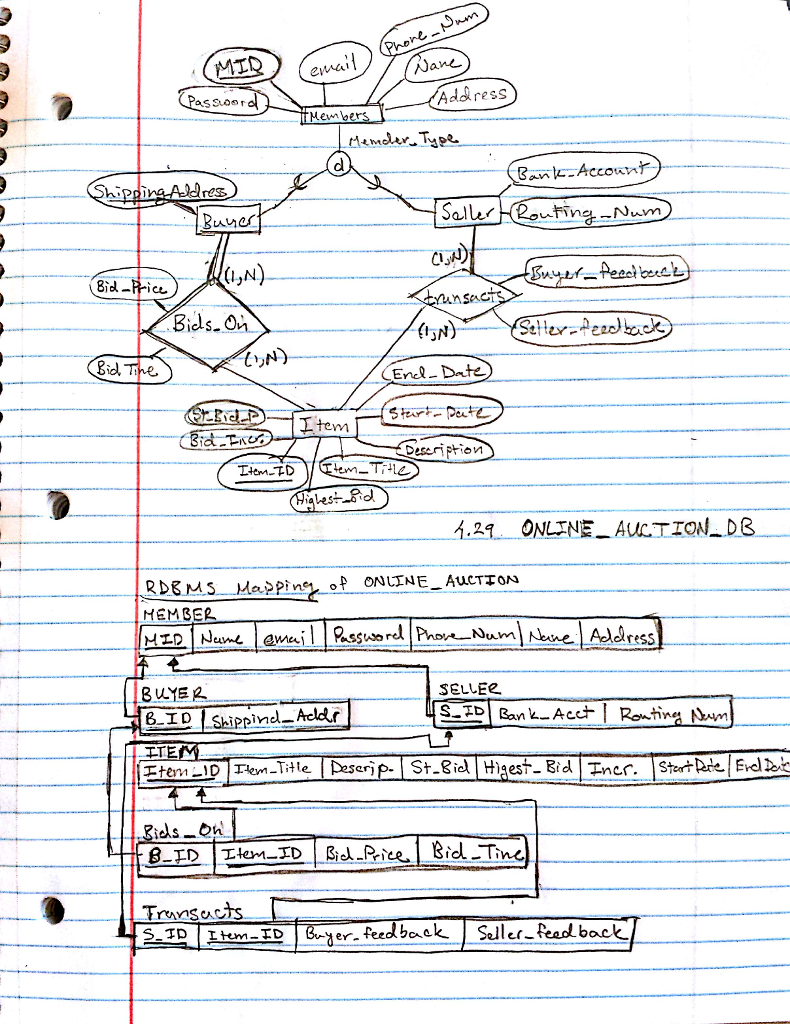 Phone_Num
email
MID
Name
Password
Address
Members
Member_Type
d
Bank_Account
Shipping Address
Seller
Routing_Num
Buyer
(1,N)
(1,N)
Buyer_feedback
Bid_Price
transacts
Bids_On
(1,N)
Seller_feedback
(1,N)
Bid Time
End_Date
St_Bid_P
Start_Date
Item
Bid_Incr.
Description
Item_ID
Item_Title
Highest_Bid
4.29. ONLINE_AUCTION_DB
RDBMS Mapping of ONLINE_AUCTION
MEMBER
MID Name email Password Phone_Num Name Address
BUYER SELLER
B_ID Shippind_Addr S_ID Bank_Acct Routing Num
ITEM
Item_ID Item_Title Descrip. St_Bid Higest_Bid Incr. Start Date End Date
Bids_On
B_ID Item_ID Bid_Price Bid_Time
Transacts
S_ID Item_ID Buyer_feedback Seller_feedback